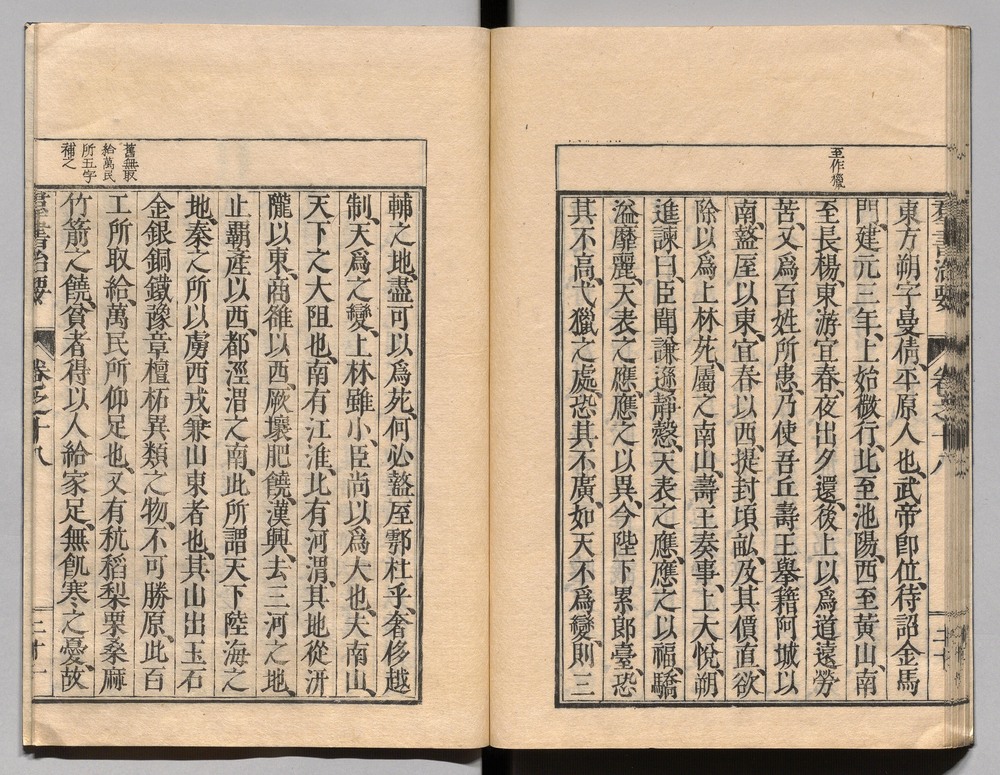 羣書治要　卷之十八　三十
至作
東方朔字曼倩、平原人也、武帝卽位、待詔金馬
門、建元三年、上始微行、北至池陽、西至黃山、南
至長楊、東游宜春、夜出夕還、後上以爲道遠勞
苦、又爲百姓所患、乃使吾丘壽王、舉籍阿城以
南、盩厔以東、宜春以西、提封頃畝、及其價直、欲
除以爲上林苑、屬之南山、壽王奏事、上大悅、朔
進諫曰、臣聞謙遜靜愨、天表之應、應之以福、驕
溢靡麗、天表之應、應之以異、今陛下累郎臺、恐
其不高、弋獵之處、恐其不廣、如天不爲變、則三
輔之地、盡可以爲苑、何必盩厔鄠杜乎、奢侈越
制、天爲之變、上林雖小、臣尚以爲大也、夫南山
天下之大阻也、南有江淮、北有河渭、其地從汧
隴以東、商雒以西、厥壤肥饒、漢興、去三河之地、
止霸產以西、都涇渭之南、此所謂天下陸海之
地、秦之所以虜西戎兼山東者也、其山出玉石
金銀銅鐵豫章檀柘異類之物、不可勝原、此百
工所取給、萬民所仰足也、又有秔稻梨栗桑麻
竹箭之饒、貧者得以人給家足、無飢寒之憂、故
舊無取
給萬民
所五字
補之
羣書治要　卷之十八　三十一